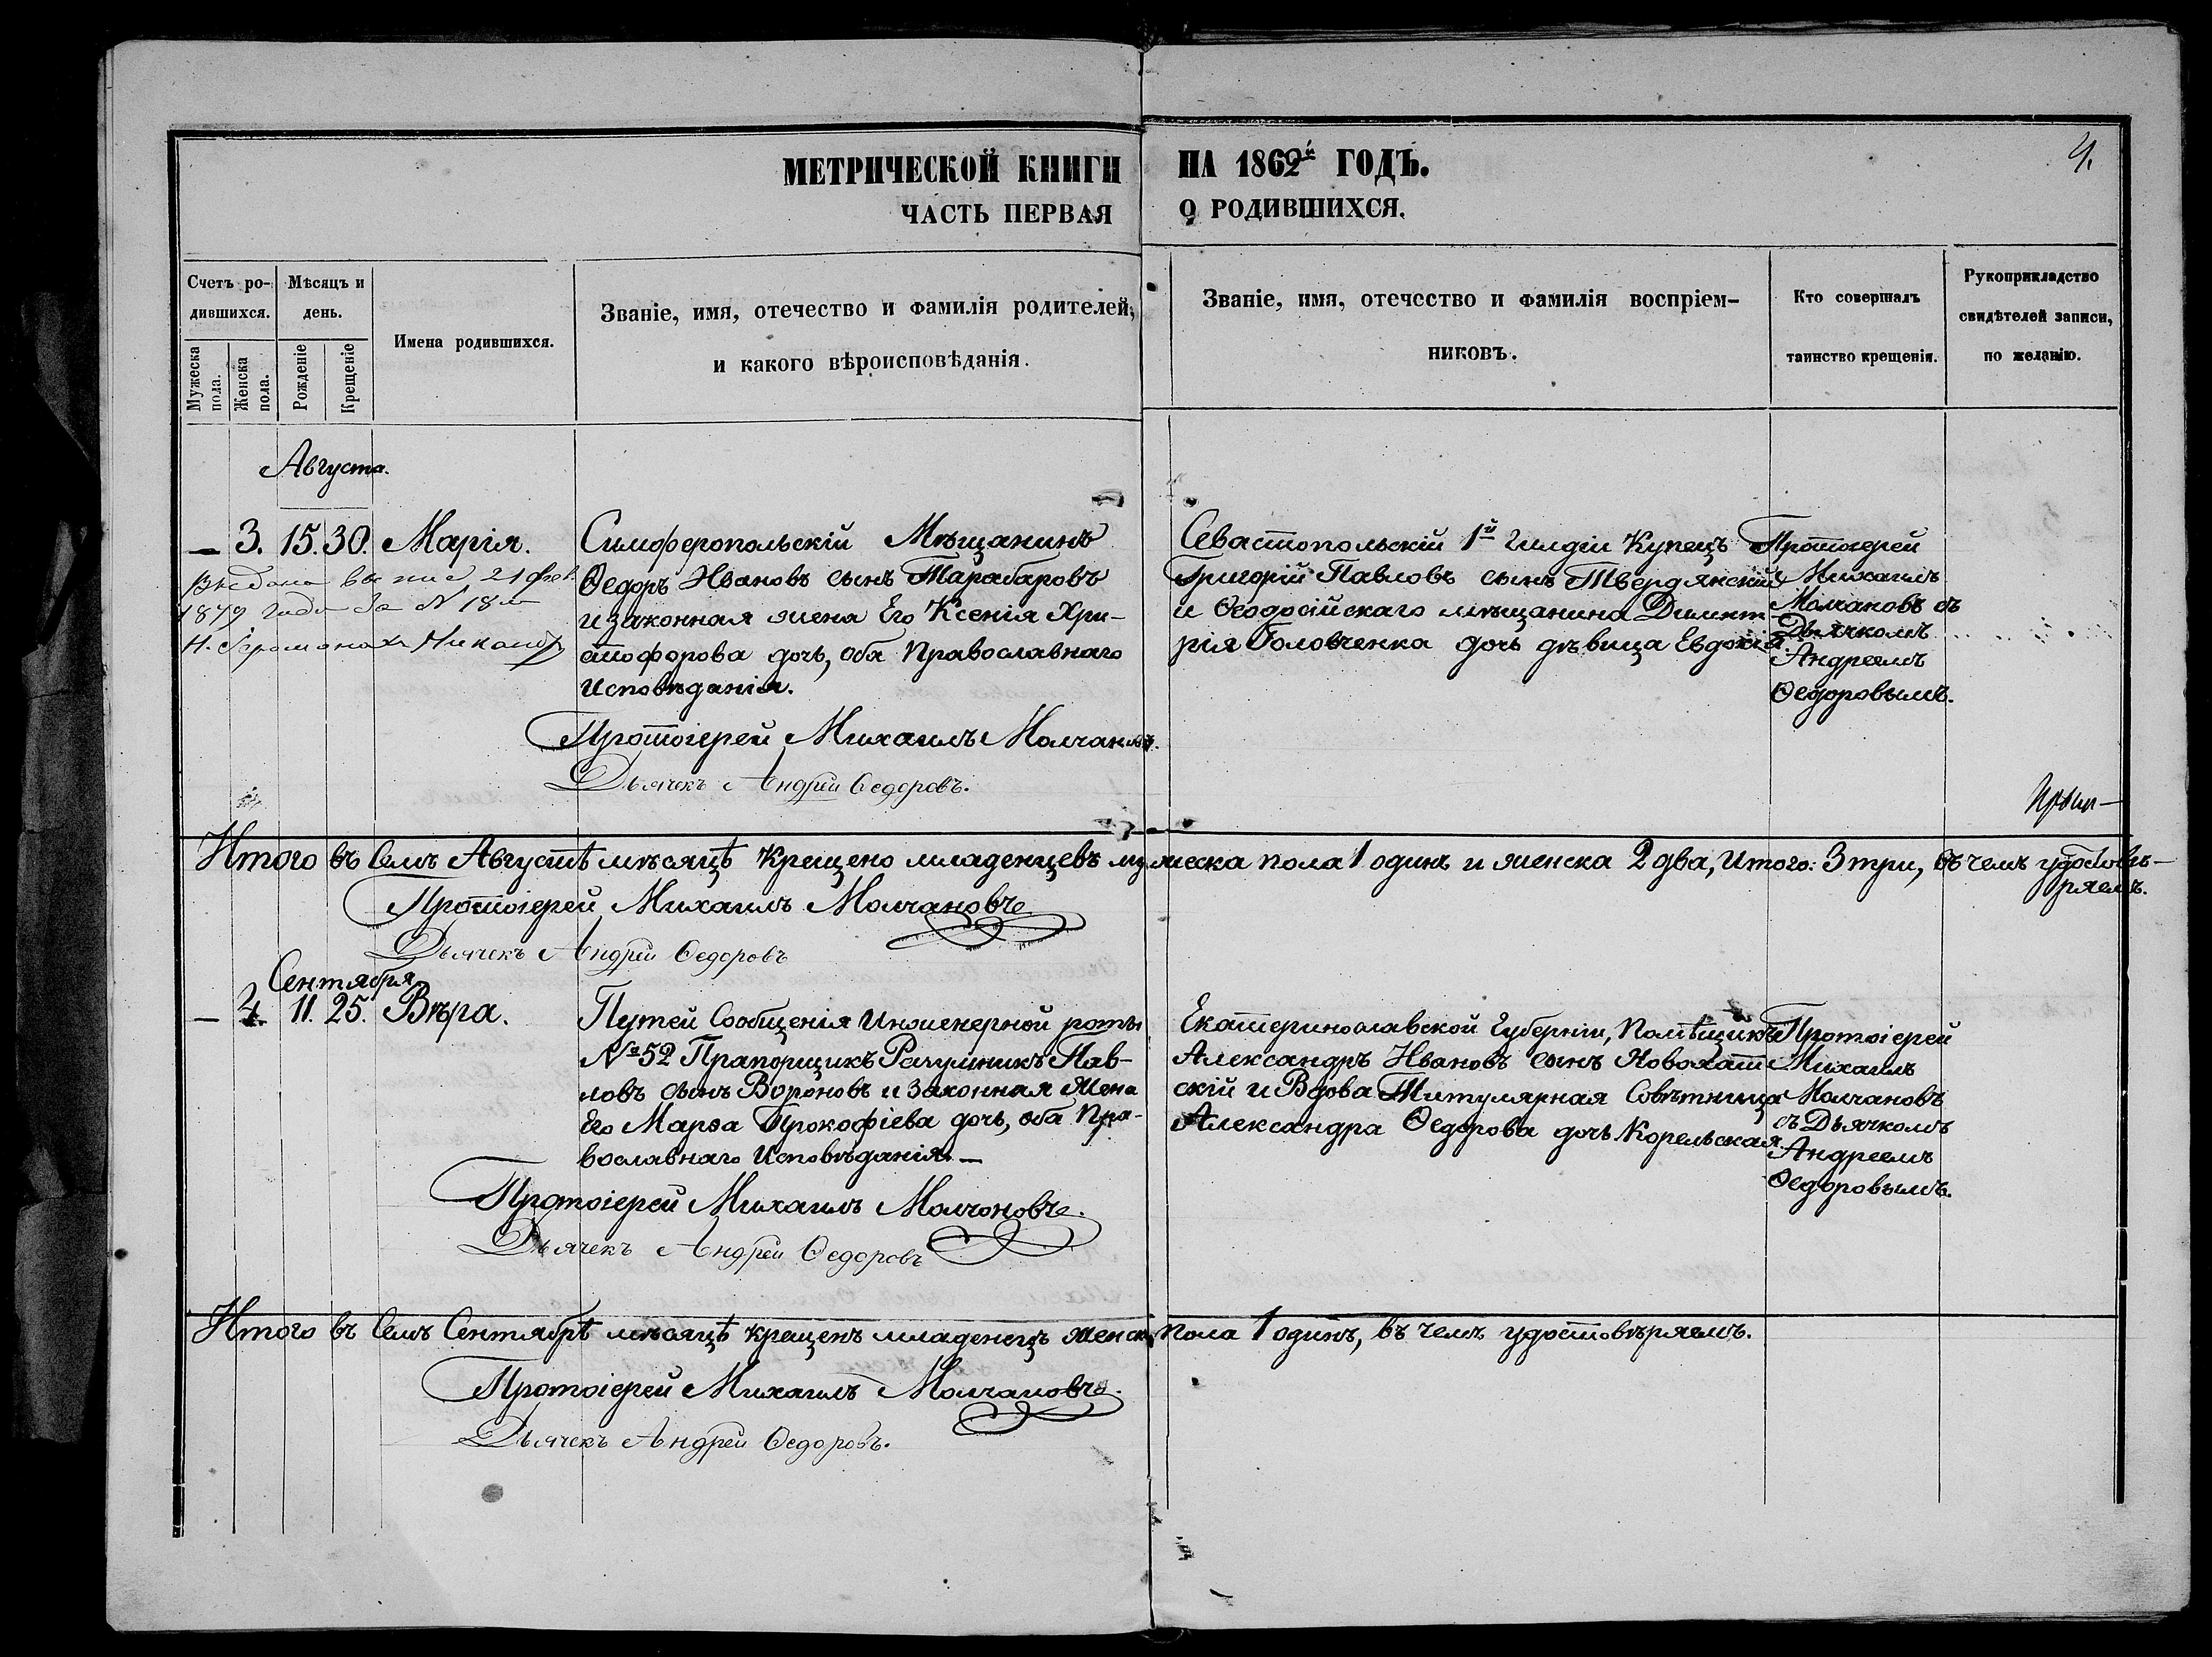 МЕТРИЧЕСКОЙ КНИГИ НА 1862й ГОДЪ.
4.
ЧАСТЬ ПЕРВАЯ О РОДИВШИХСЯ.
Счетъ ро-
дившихся.
Мужеска пола.
Женска пола.
Мѣсяцъ и
день.
Рожденіе
Крещеніе
Имена родившихся.
Званіе, имя, отечество и фамилія родителей,
и какого вѣроисповѣданія.
Званіе, имя, отечество и фамилія воспріем-
никовъ.
Кто совершалъ
таинство крещенія.
Рукоприкладство
свидѣтелей записи,
по желанію.
Августа.
— 3. 15. 30. Марія.
21 фев.
1879 года за № 18м
Іеромонахъ
Симферопольскій Мѣщанинъ
Ѳедоръ Ивановъ сынъ Тарабаровъ
и законная жена Его Ксенія Хри-
стофорова дочь, оба Православнаго
Исповѣданія.
Севастопольскій 1й Гилдіи Купецъ
Григорій Павловъ сынъ Твердянскій
и Ѳеодосійскаго мѣщанина Димит-
рія Головченка дочь дѣвица Евдокія.
Протоіерей
Михаилъ
Молчановъ съ
Дьячкомъ
Андреемъ
Ѳедоровымъ.
Протоіерей Михаилъ Молчановъ.
Дьячекъ Андрей Ѳедоровъ.
Итого въ Семъ Августѣ мѣсяцѣ Крещено младенцевъ мужеска пола 1 одинъ и женска 2 два, Итого: 3 три, въ чемъ удостовѣ-
ряемъ.
Протоіерей Михаилъ Молчановъ
Дьячекъ Андрей Ѳедоровъ
Сентября
— 4. 11. 25. Вѣра.
Путей Сообщенія Инженерной роты
№ 52 Прапорщикъ Пав
ловъ сынъ Вороновъ и Законная Жена
Его Марѳа Прокофіева дочь, оба Пра-
вославнаго Исповѣданія. —
Екатеринославской Губерніи, Помѣщикъ
Александръ Ивановъ сынъ Новохат
скій и Вдова Титулярная Совѣтница
Александра Ѳедорова дочь Корельская.
Протоіерей
Михаилъ
Молчановъ
съ Дьячкомъ
Андреемъ
Ѳедоровымъ.
Протоіерей Михаилъ Молчановъ.
Дьячекъ Андрей Ѳедоровъ
Итого въ Семъ Сентябрѣ мѣсяцѣ крещенъ младенецъ женск. пола 1 одинъ, въ чемъ удостовѣряемъ.
Протоіерей Михаилъ Молчановъ.
Дьячекъ Андрей Ѳедоровъ.